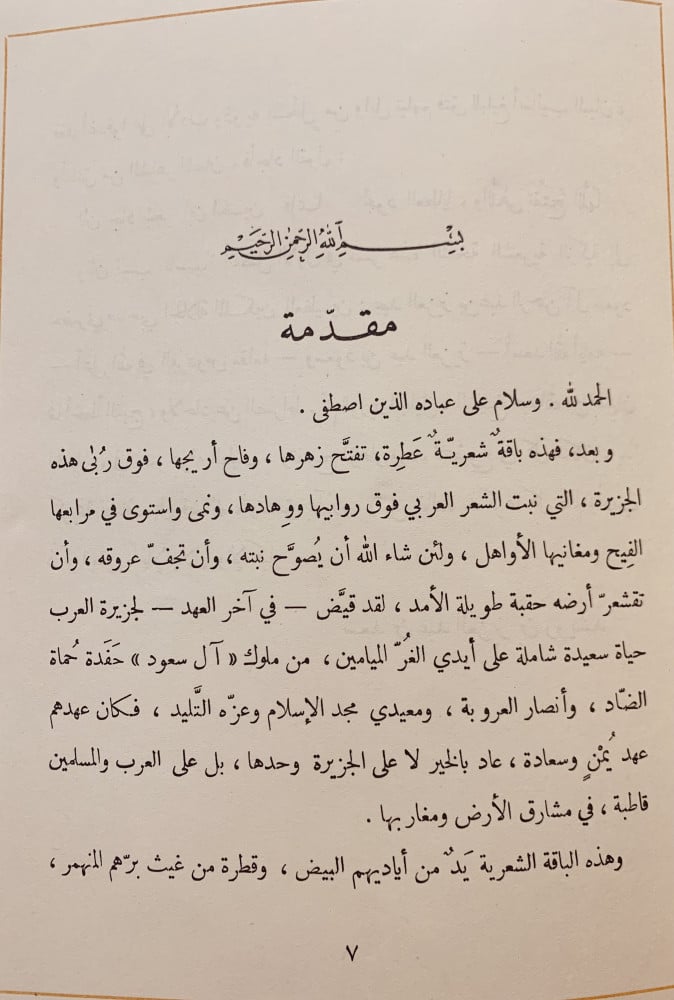 بِسْمِ ٱللهِ الرَّحْمٰنِ الرَّحِيْمِ
مقدّمة
الحمد لله . وسلام على عباده الذين اصطفى .
وبعد، فهذه باقةٌ شعريّةٌ عَطِرة، تفتَّح زهرها ، وفاح أريجها ، فوق رُبٰى هذه
الجزيرة ، التي نبت الشعر العربي فوق روابيها ووِهادها ، ونمى واستوى في مرابعها
الفِيح ومغانيها الأواهل ، ولئن شاء الله أن يُصوَّح نبته ، وأن تجفّ عروقه ، وأن
تقشعرّ أرضه حقبة طويلة الأمد ، لقد قيَّض — في آخر العهد — لجزيرة العرب
حياة سعيدة شاملة على أيدي الغُرّ الميامين ، من ملوك « آل سعود » حَفَدة حُماة
الضّاد ، وأنصار العروبة ، ومعيدي مجد الإسلام وعزّه التَّليد ، فكان عهدهم
عهد يُمْنٍ وسعادة ، عاد بالخير لا على الجزيرة وحدها ، بل على العرب والمسلمين
قاطبة ، في مشارق الأرض ومغاربها .
وهذه الباقة الشعرية يَدٌ من أياديهم البيض ، وقطرة من غيث برّهم المنهمر ،
٧